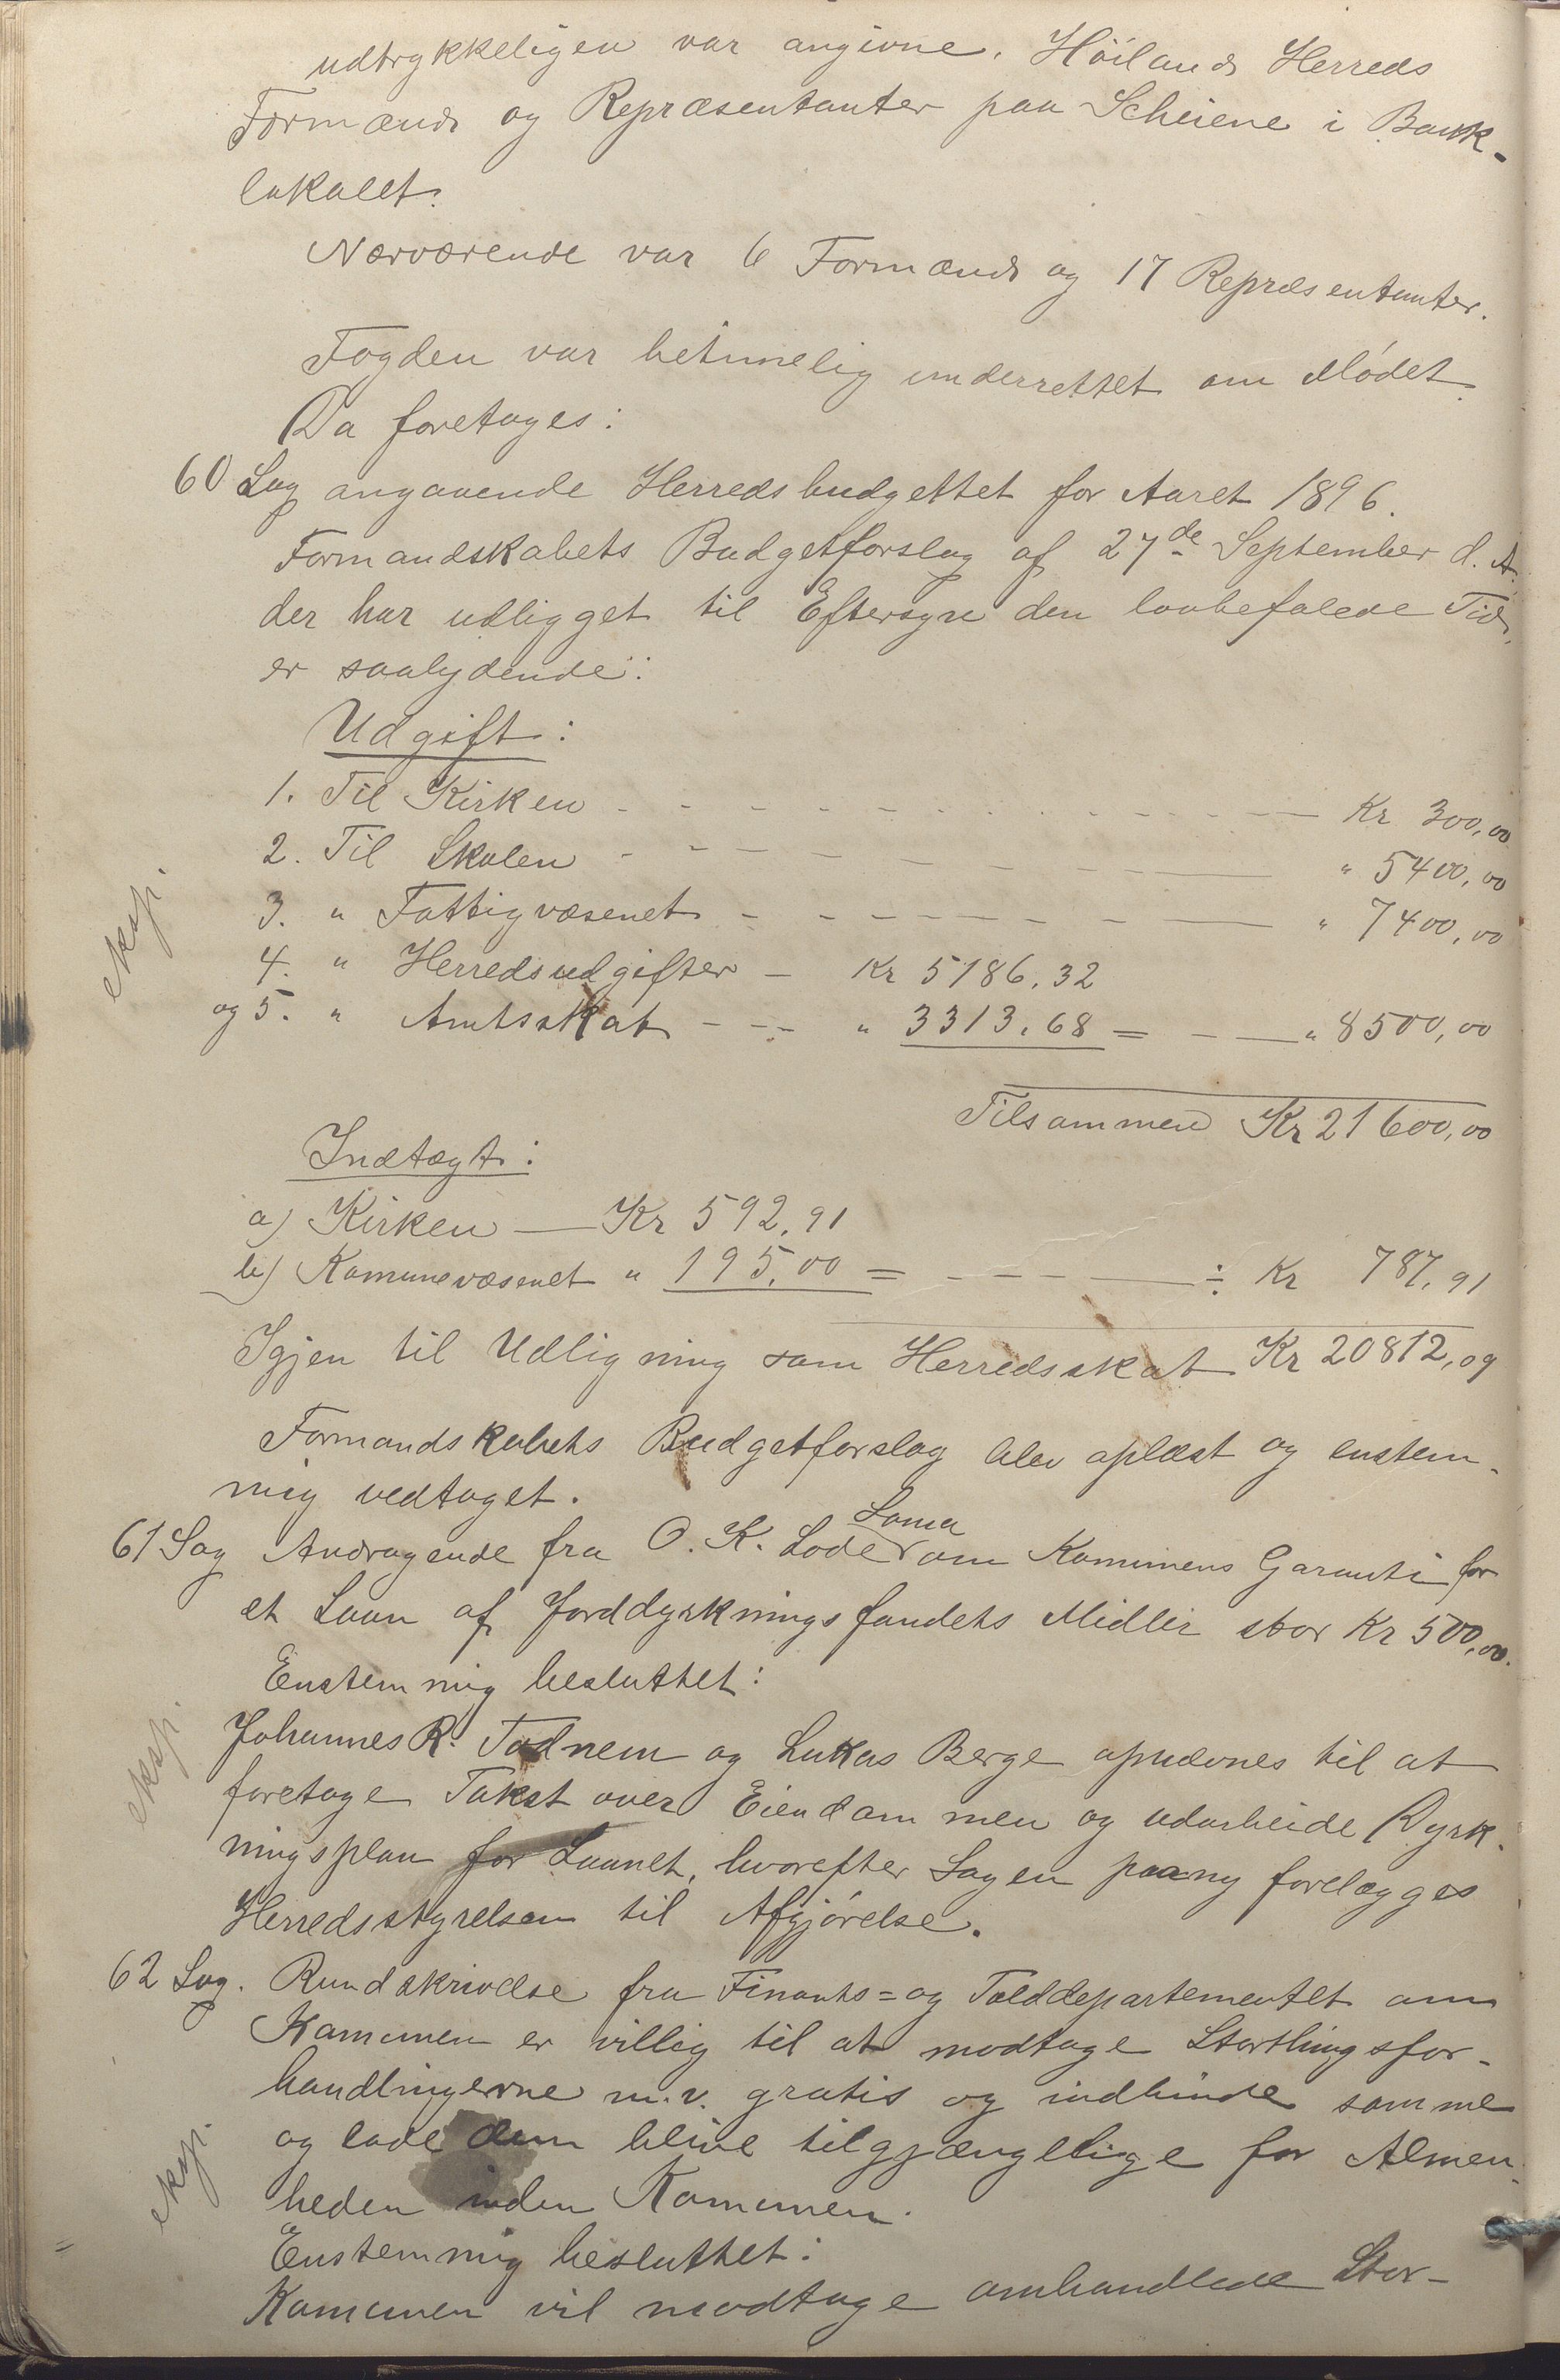 udtrykkeligen var angivne. Höilands Herreds
Formænd og Repræsentanter paa Scheiene i Bank-
lokalet.
Nærværende var 6 Formænd og 17 Repræsentanter.
Fogden var betimelig underrettet om Mödet.
Da foretoges:
60 Sag angaaende Herredsbudgettet for Aaret 1896.
Formandskabets Budgetforslag af 27de September d. A.
der har udligget til Eftersyn den lovbefalede Tid,
er saalydende:
Udgift:
1. Til Kirken - - - - - - - Kr 300,00
2. Til Skolen - - - - - - - " 5400,00
3. " Fattigvæsenet - - - - - - - " 7400,00
4. " Herredsudgifter - Kr 5186,32
og 5. " Amtsskat - - - " 3313,68 = - - " 8500,00
Tilsammen Kr 21600,00
Indtægt:
a) Kirken — Kr 592,91
b) Komunevæsenet " 195,00 = - - - - ÷ Kr 787,91
Igjen til Udligning som Herredsskat Kr 20812,09
Formandskabets Budgetforslag blev oplæst og enstem-
mig vedtaget.
61 Sag Andragende fra O. K. Lode Soma om Komunens Garanti for
et Laan af Jorddyrkningsfondets Midler stor Kr 500,00.
Enstemmig besluttet:
Johannes R. Todnem og Lukas Berge opnævnes til at
foretage Takst over Eiendommen og udarbeide Dyrk-
ningsplan for Laanet, hvorefter Sagen paany forelægges
Herredsstyrelsen til Afgjörelse.
62 Sag. Rundskrivelse fra Finants= og Tolddepartementet om
Komunen er villig til at modtage Storthingsfor-
handlingerne m.v. gratis og indbinde samme
og lade dem blive tilgjængelige for Almen-
heden inden Komunen.
Enstemmig besluttet:
Komunen vil modtage omhandlede Stor-
eksp.
eksp.
eksp.